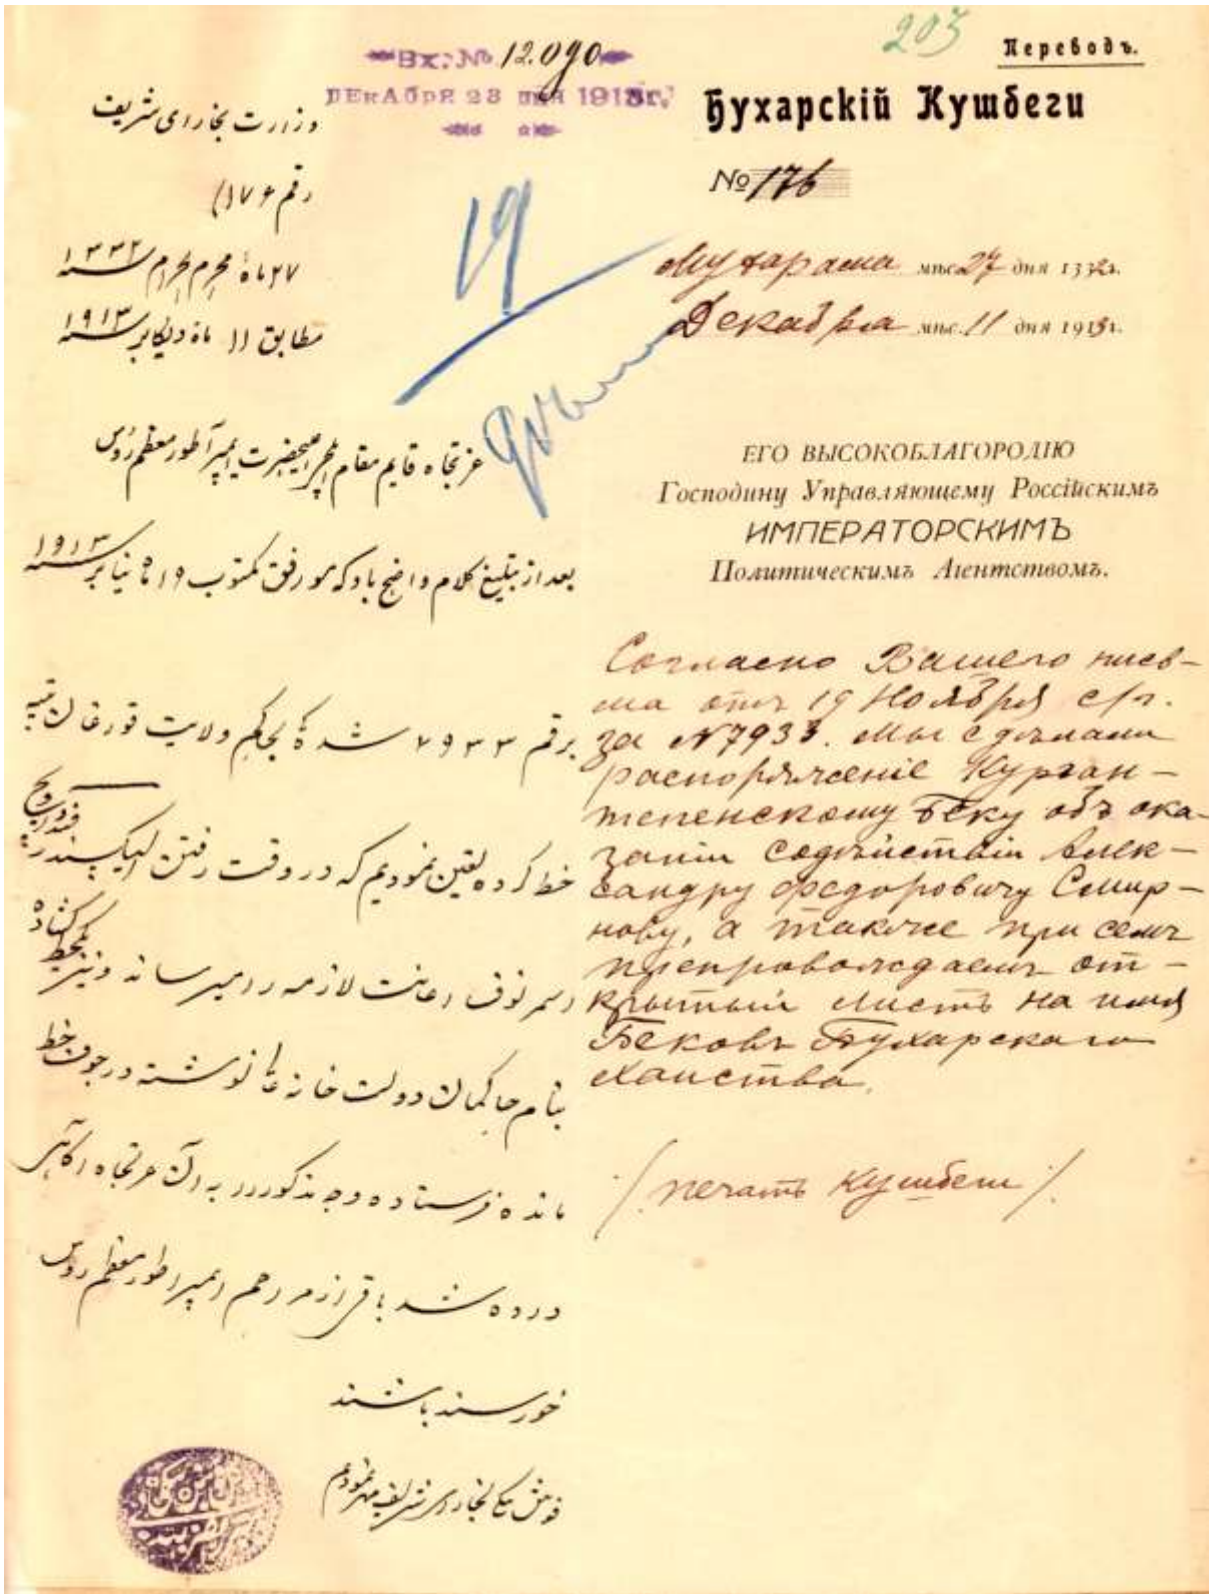 203
Переводъ.
Вх. № 12.090
ДЕКАбРЯ 23 ДНЯ 1913г.
Бухарскій Кушбеги
№ 176
Мухарама мѣс. 27 дня 1332г.
Декабря мѣс. 11 дня 1913г.
19
ЕГО ВЫСОКОБЛАГОРОДІЮ
Господину Управляющему Россійскимъ
ИМПЕРАТОРСКИМЪ
Политическимъ Агентствомъ.
Согласно Вашего пись-
ма отъ 19 Ноября с/г.
за №7933. Мы сдѣлали
распоряженіе Курган-
тепенскому Беку объ ока-
заніи содѣйствія Алек-
сандру Федоровичу Смир-
нову, а также при семъ
препровождаемъ от-
крытый листъ на имя
Бековъ Бухарскаго
Ханства.
/ печать Кушбеги /.
وزارت بخارای شریف
رقم ۱۷۶)
۲۷ ماهٔ محرم الحرام سنه ۱۳۳۲
مطابق ۱۱ ماه دیکابر سنه ۱۹۱۳
عزتجاه قایم مقام اعلیحضرت ایمپراطور معظم روس
بعد از تبلیغ کلام واضح باد که موافق مکتوب ۱۹ ماه نیابر سنه ۱۹۱۳
برقم ۷۹۳۳ شده گی بحاکم ولایت قورغان تیپه
خط کرده تعین نمودیم که در وقت رفتن الیکسندر فیدراویچ
اسمرنوف اعانت لازمه را میرساند و نیز یکخط کشاده
بنام حاکمان دولت خانه عالی نوشته در جوف خط
مانده فرستاده وجه مذکور را به آن عزتجاه اگاهی
داده شد باقی از مراحم ایمپراطور معظم روس
خورسند باشند
قوشبیگی بخارای شریف مهر نمودم